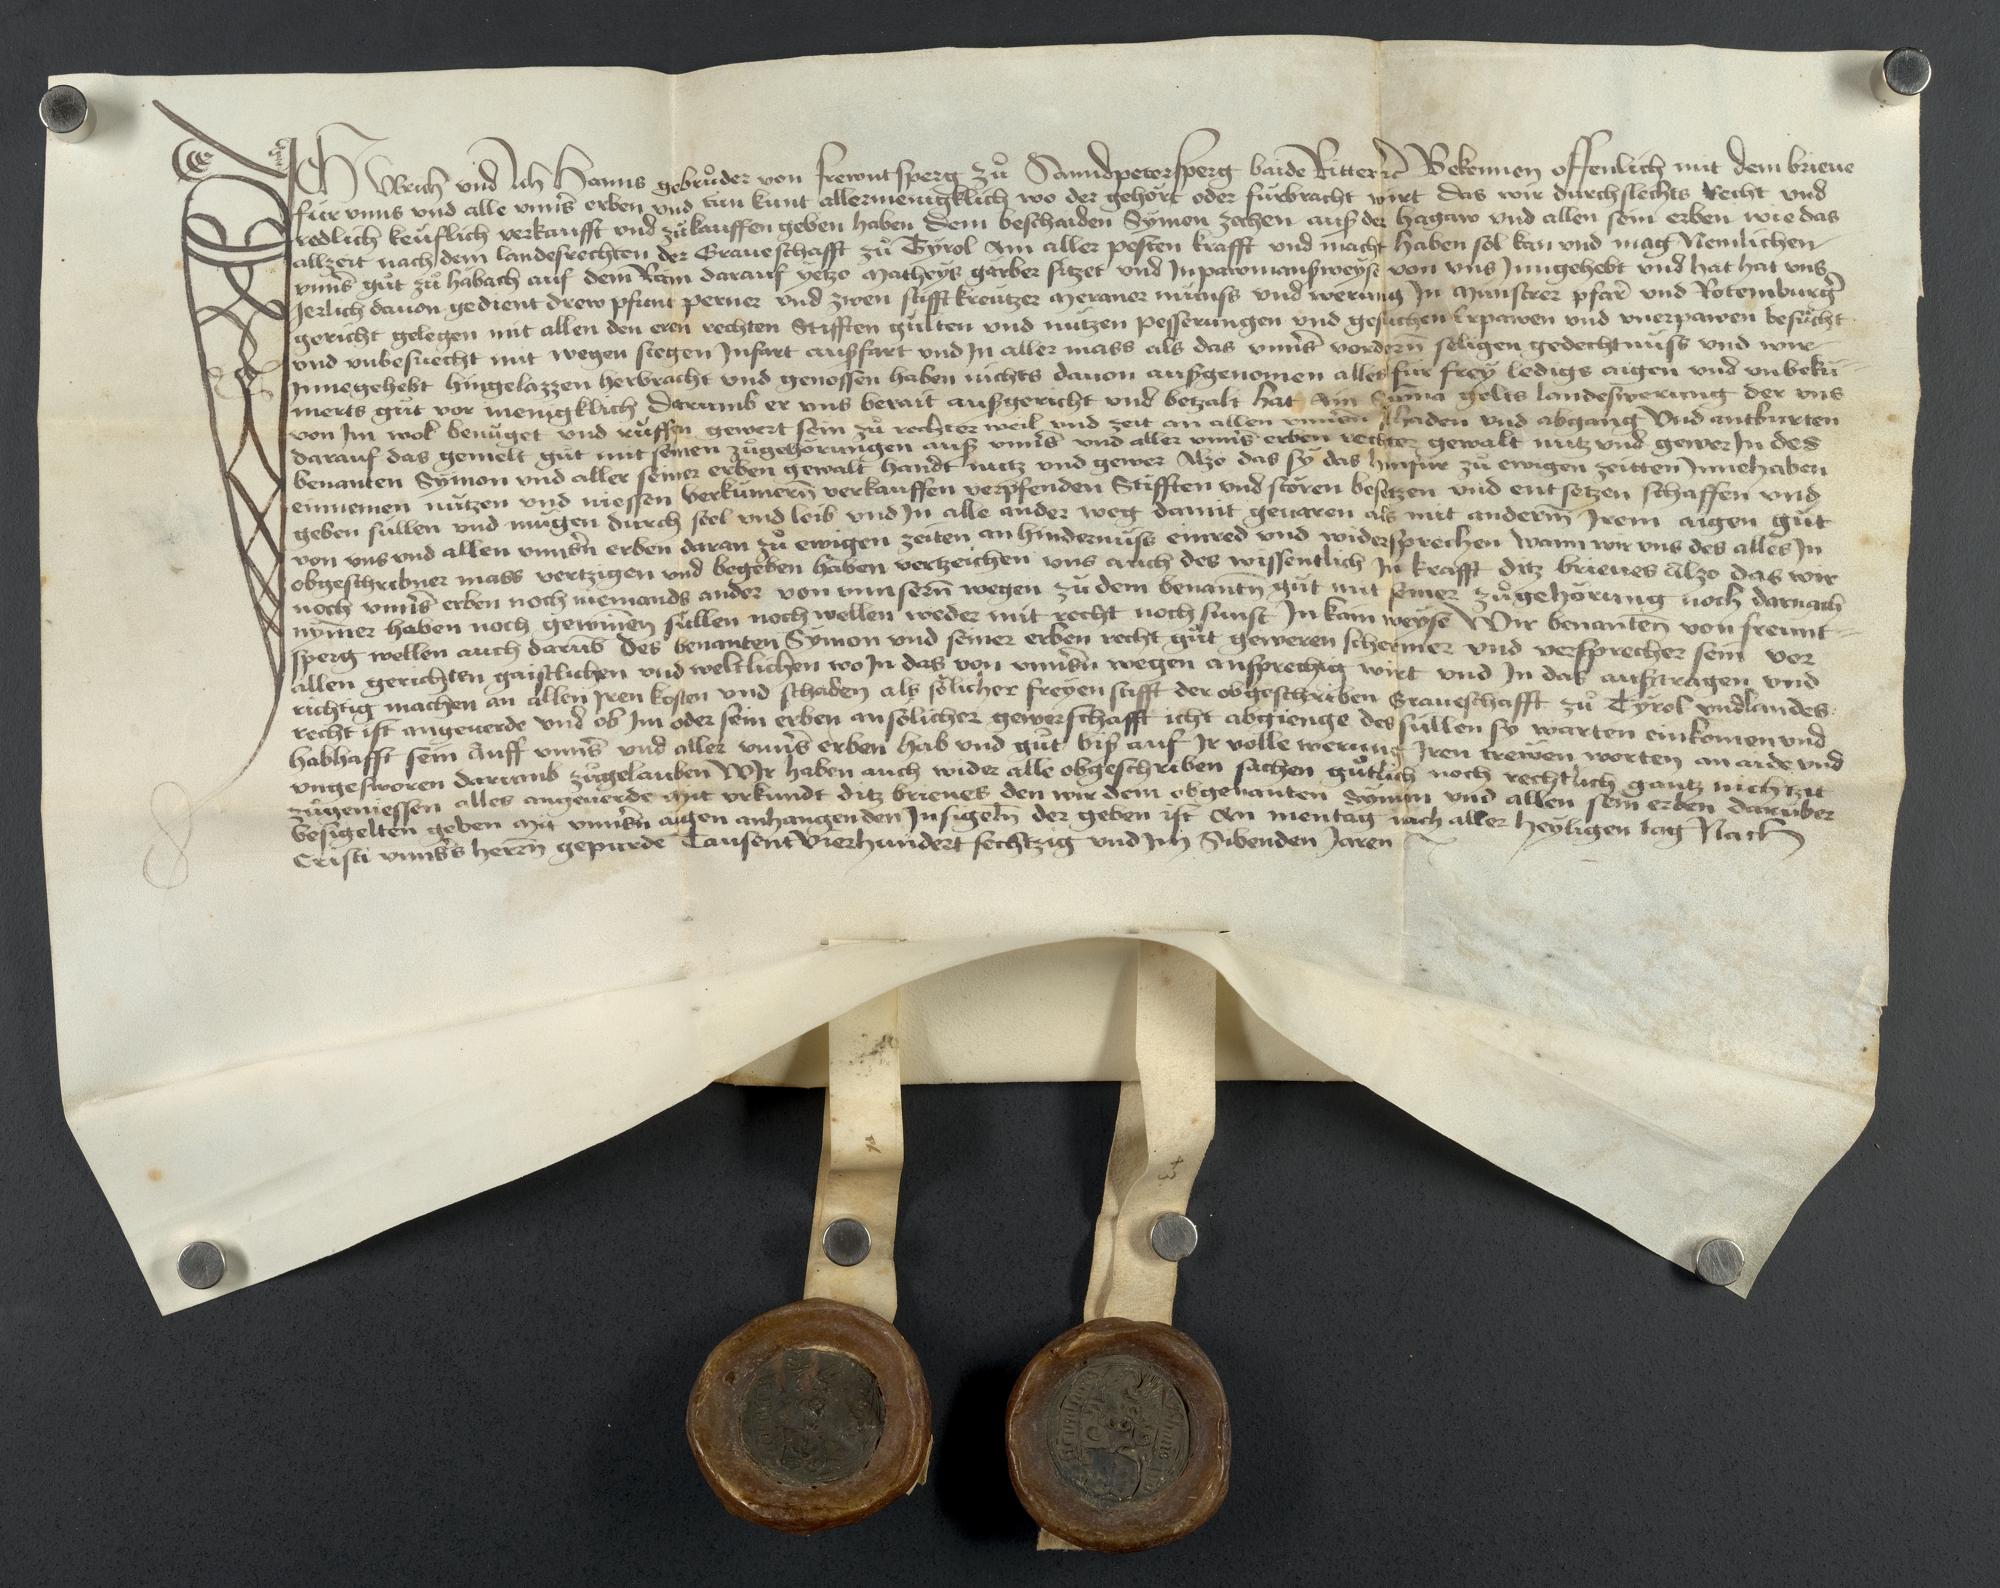 Ich Vlrich vnd Ich Hanns gebruͦder von frewntsperg zuͦ Sanndpetersperg baide Ritter ꝛc Bekennen offenlich mit dem brieue
fur vnns vnd alle vnnsˀ erben vnd tun kunt allermenigklich wo der gehört oder furbracht wirt Das wir durchslechts Recht vnd
redlich keuflich verkaufft vnd zukauffen geben haben Dem beschaiden Symon zochen auß der hagaw vnd allen sein erben wie das
allzeit nach dem landesrechten der Graueschafft zuͦ Tyrol Am aller pesten krafft vnd macht haben sol kan vnd mag Nemlichen
vnnsˀ guͦt zuͦ habach auf dem Rain darauf yetzo Matheys garber sitzet vnd Inpawmansweyse von vns Inngehebt vnd hat hat vns
Jerlich dauon gedient drew pfunt perner vnd zwen stifft kreutzer Meraner münss vnd werung In Munstrer pfarˀ vnd Rotemburgˀ
gericht gelegen mit allen den eren rechten Stifften gulten vnd nutzen pesserungen vnd gesuchen Erpawen vnd vnerpawen besucht
vnd vnbesuecht mit wegen stegen Infart außfart vnd In aller mass als das vnnsˀ vordern̄ seligen gedechtnuss vnd wir
Innegehebt hingelazzen herbracht vnd genossen haben nichts dauon außgenomen alles fur frey ledigs aigen vnd vnbeku-
merts guͦt vor menigklich Darumb er vns berait außgericht vnd betzalt hat Ain Suma gelts landeswerung der vns
von Im wol benuget vnd ruffen gewert sein zuͦ rechter weil vnd zeit an allen vnnsern schaden vnd abgang Vnd antburten
darauf das gemelt gut mit seinen zuͦgehörungen auß vnnsˀ vnd aller vnnsˀ erben rechter gewalt nutz vnd gewer In des
benanten Symon vnd aller seiner erben gewalt handt nutz vnd gewer Alzo das sy das hinfur zuͦ ewigen zeitten Innehaben
einnemen nutzen vnd niessen verkumern̄ verkauffen verpfenden Stifften vnd stören besetzen vnd entsetzen schaffen vnd
geben sullen vnd mugen durch seel vnd leib vnd In alle ander weg damit geuaren als mit anderm̄ Irem aigen gut
von vns vnd allen vnnsˀn erben daran zuͦ ewigen zeiten an hindernuss einred vnd widersprechen Wann wir vns des alles In
obgeschribner mass vertzigen vnd begeben haben vertzeichen vns auch des wissentlich In krafft ditz brieues Alzo das wir
noch vnnsˀ erben noch niemands ander von vnnsern̄ wegen zu dem benantn̄ gut mit seiner zuͦgehörung noch darnach
nymer haben noch gewinnen sullen noch wellen weder mit recht noch sunst In kain weyse Wir benanten von freunt-
sperg wellen auch darūb Des benanten Symon vnd seiner erben recht guͦt geweren schermer vnd versprecher sein vor
allen gerichten gaistlichen vnd weltlichen wo In das von vnnsˀn wegen ansprechig wirt vnd In das außtragen vnd
richtig machen an allen Iren kosten vnd schaden als sölicher freyen stifft der obgeschriben Graueschafft zuͦ Tyrol vnd landes
recht ist angeuerde Vnd ob Im oder sein erben an sölicher gewerschafft icht abgienge des sullen sy warten einkomen vnd
habhafft sein Auff vnnsˀ vnd aller vnnsˀ erben hab vnd guͦt biß auf Ir volle werung Iren trewen worten an aide vnd
vngesworen darumb zuͦgelauben Wir haben auch wider alle obgeschriben sachen guͦtlich noch rechtlich gantz nichtzit
zuͦgeniessen alles angeuerde Mit vrkundt ditz brieues den wir dem obgenanten Symon vnd allen sein erben daruber
besigelten geben Mit vnnsˀn aigen anhangenden Insigeln̄ der geben ist An mentag nach aller heyligen tag Nach
Cristi vnnsˀs herrn̄ gepurde Tausent Vierhundert sechtzig vnd Im Sibenden Jaren